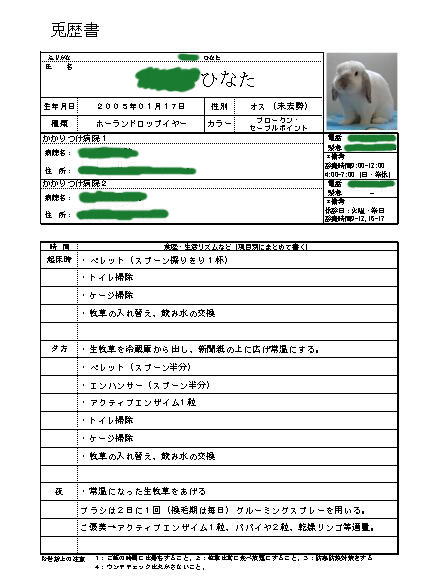 兎歴書
ふりがな ひなた
氏 名 ひなた
生年月日 2005年01月17日 性別 オス（未去勢）
種類 ホーランドロップイヤー カラー ブロークン・セーブルポイント
かかりつけ病院1 電話
病院名： 緊急
*備考
住 所： 診療時間9:00-12:00
4:00-7:00（日・祭休）
かかりつけ病院2 電話
病院名： 緊急 －
*備考
住 所： 休診日：火曜・祭日
診療時間9-12,16-17
時 間 食理・生活リズムなど（項目別にまとめて書く）
起床時 ・ペレット（スプーン擦りきり1杯）
・トイレ掃除
・ケージ掃除
・牧草の入れ替え、飲み水の交換
夕方 ・生牧草を冷蔵庫から出し、新聞紙の上に広げ常温にする。
・ペレット（スプーン半分）
・エンハンサー（スプーン半分）
・アクティブエンザイム1粒
・トイレ掃除
・ケージ掃除
・牧草の入れ替え、飲み水の交換
夜 ・常温になった生牧草をあげる
ブラシは2日に1回（換毛期は毎日）グルーミングスプレーを用いる。
ご褒美→アクティブエンザイム1粒、パパイヤ2粒、乾燥リンゴ等適量。
4：ウンチチェック出欠かさないこと。